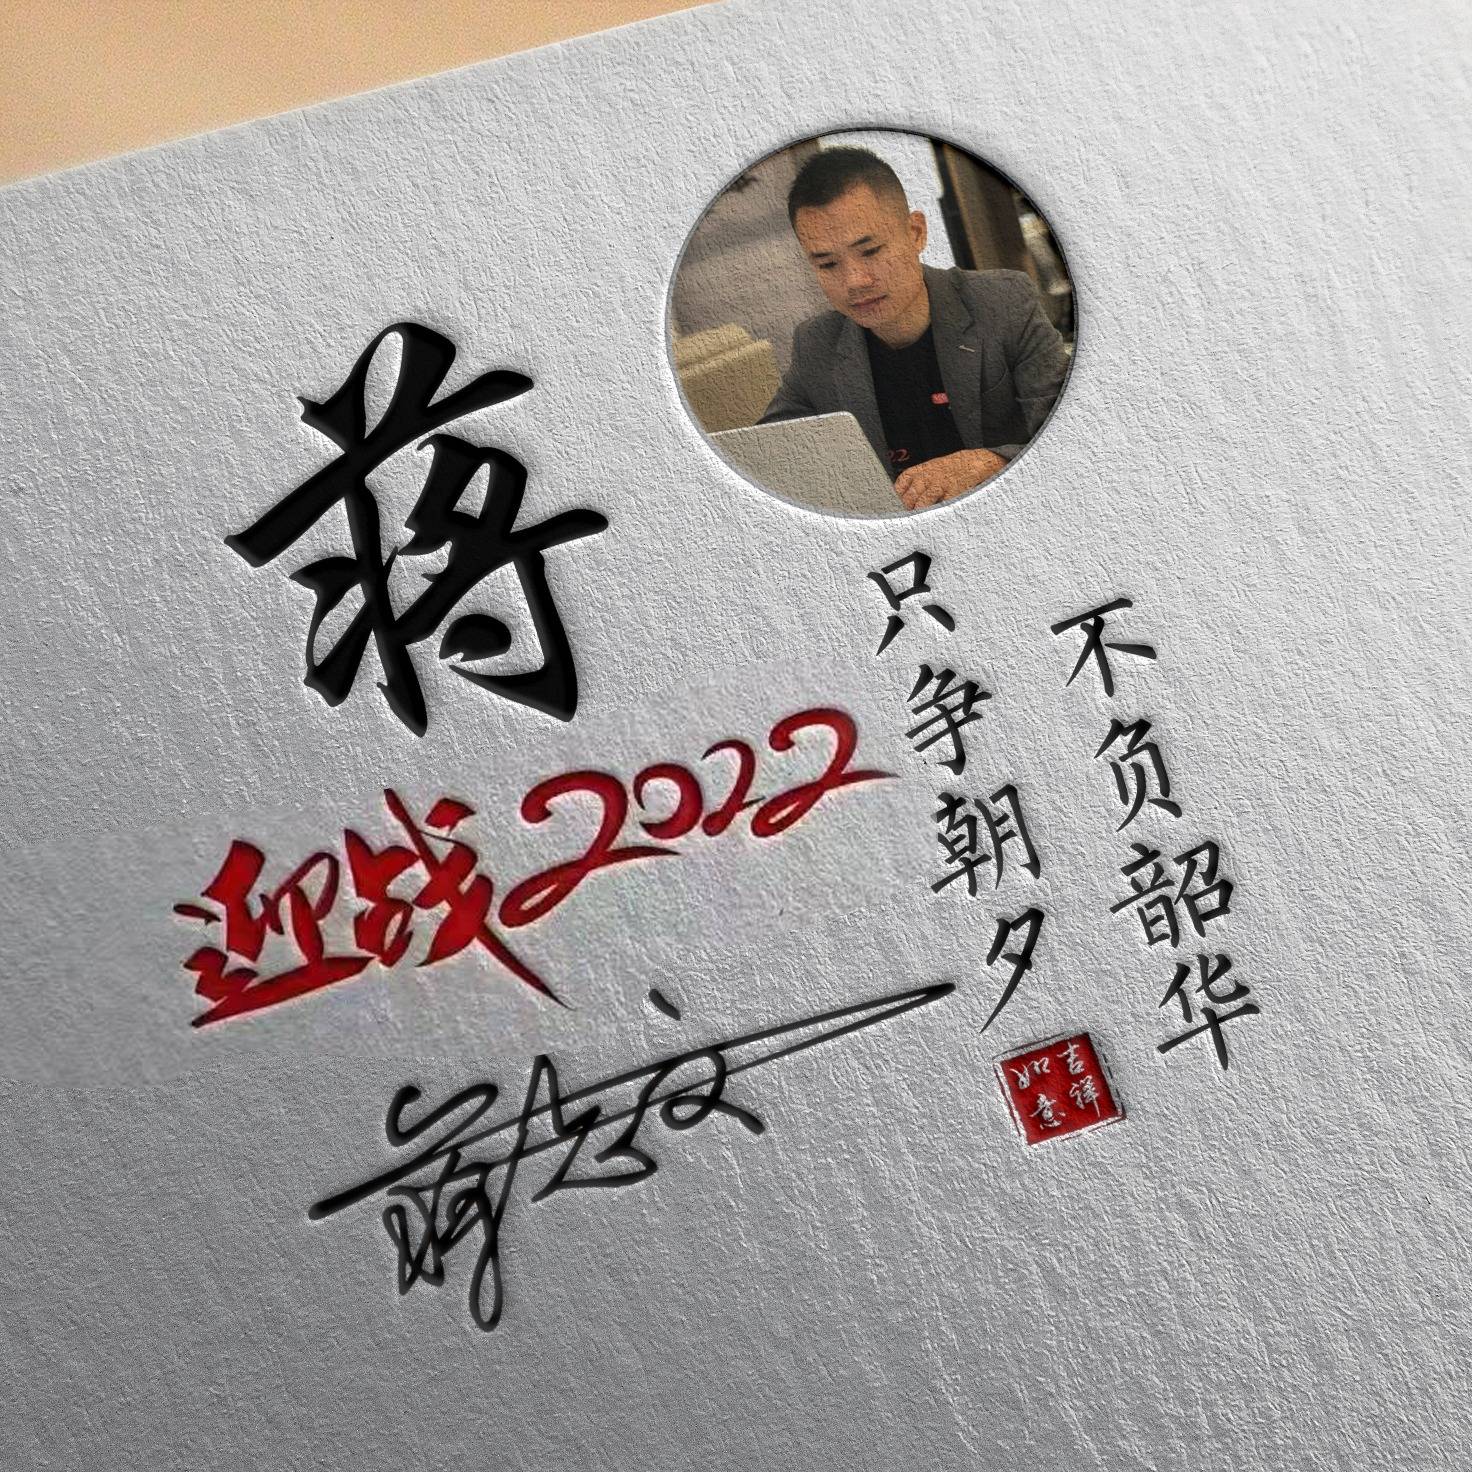 蒋
迎战2022
只争朝夕
不负韶华
吉祥
如意
22